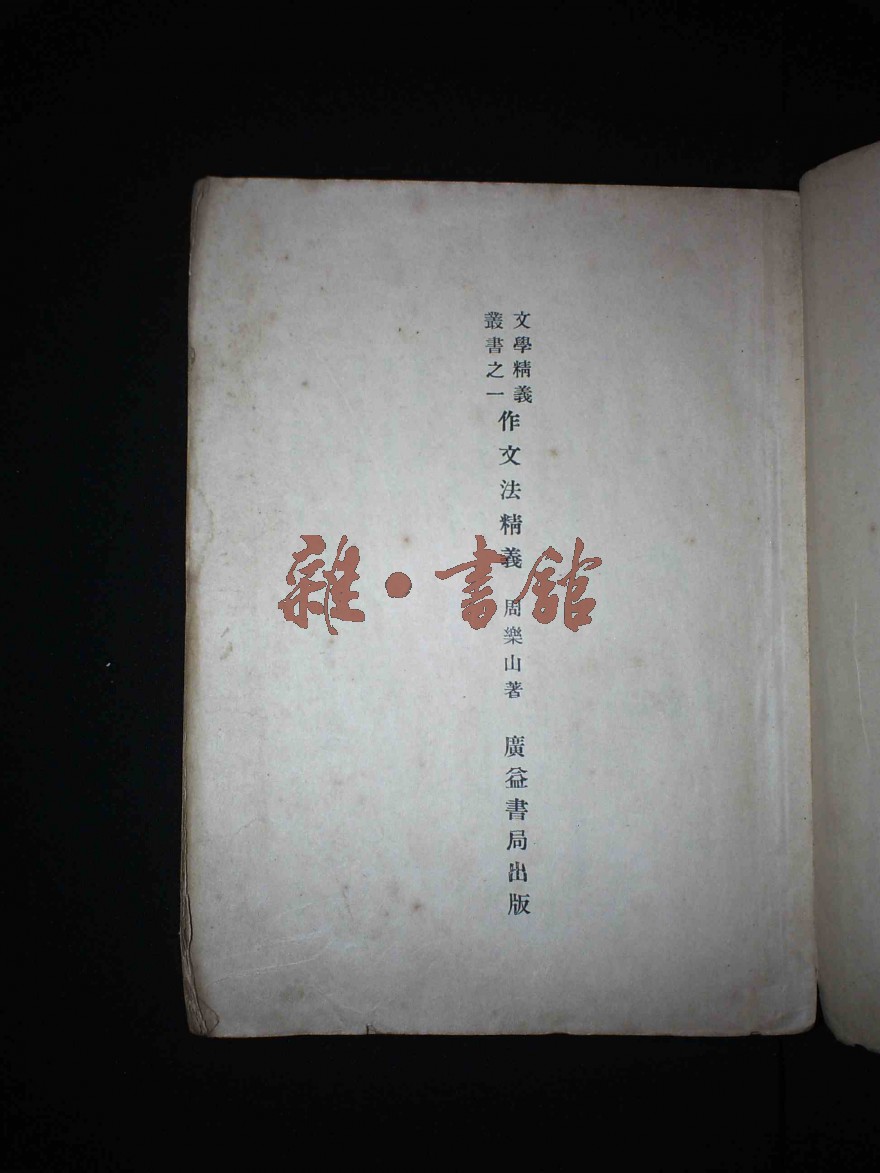 文學精義
叢書之一
作文法精義 周樂山著 廣益書局出版
雜·書館